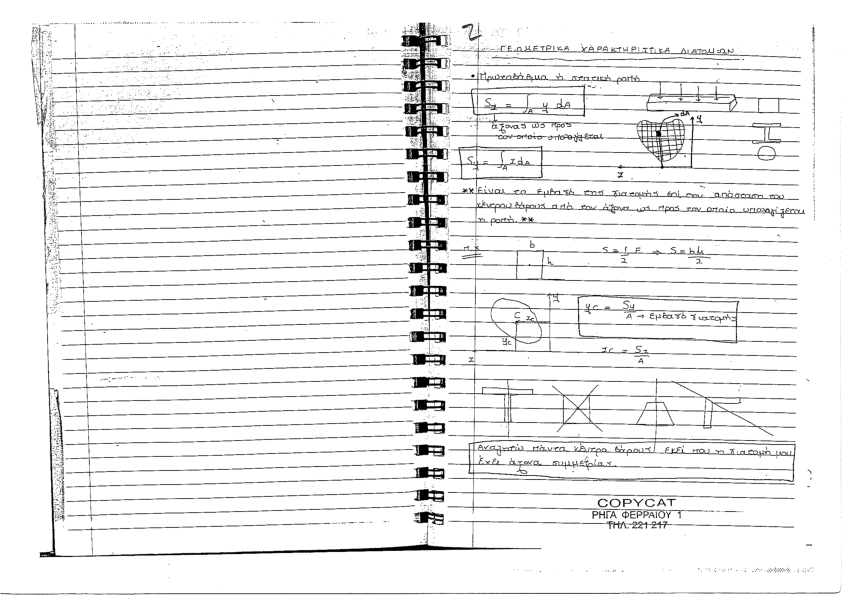 2
ΓΕΩΜΕΤΡΙΚΑ ΧΑΡΑΚΤΗΡΙΣΤΙΚΑ ΔΙΑΤΟΜΩΝ
• Πρωτοβάθμια ή στατική ροπή
S_z = ∫_A y dA
άξονας ως προς
τον οποίο υπολογίζεται
dA
y
z
S_y = ∫_A z dA
** Είναι το Εμβαδό της διατομής επί την απόσταση του
κέντρου βάρους από τον άξονα ως προς τον οποίο υπολογίζεται
η ροπή. **
π.χ
b
h
y
C z_c
y_c
z
y_c = S_y / A → Εμβαδό διατομής
z_c = S_z / A
Αναζητώ πάντα κέντρο βάρους εκεί που η διατομή μου
έχει άξονα συμμετρίας.
COPYCAT
ΡΗΓΑ ΦΕΡΡΑΙΟΥ 1
ΤΗΛ. 221 217